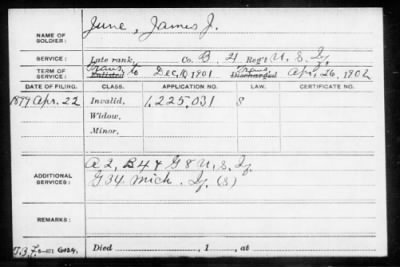 NAME OF SOLDIER: June, James J.
SERVICE: Late rank, Co. B. 4 Reg't U. S. Iy.
TERM OF SERVICE: Enlisted Trans to Dec, 10 1801 Discharged Trans. Apr, 26, 1802
DATE OF FILING. CLASS. APPLICATION NO. LAW. CERTIFICATE NO.
1899 Apr. 22 Invalid, 1,225,031 S
Widow,
Minor,
ADDITIONAL SERVICES: A 2, B 4 & G 8 U. S. Iy.
G 34 Mich. Iy. (S)
REMARKS:
Died , 1 , at